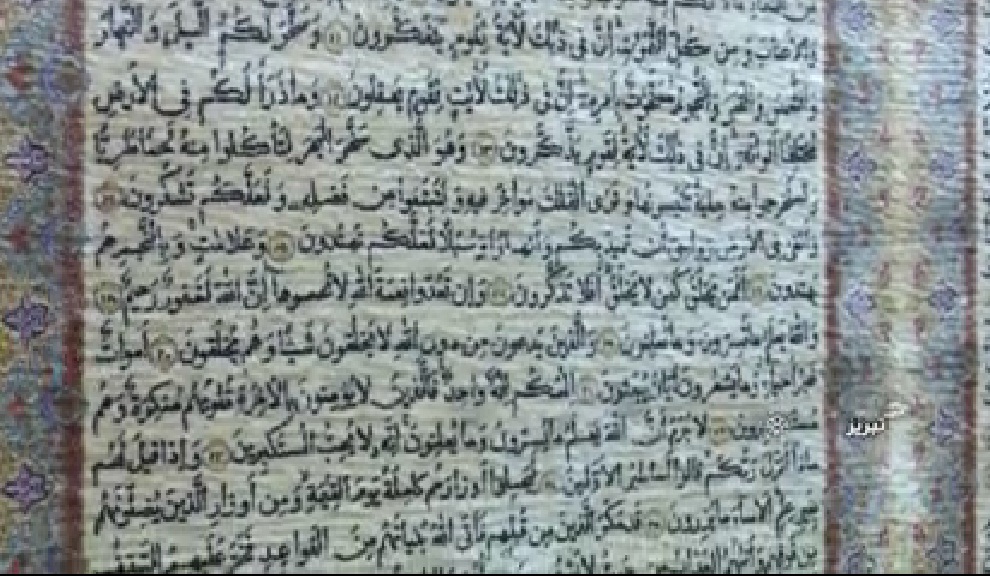 والأعناب ومن كل الثمرات إن في ذلك لآية لقوم يتفكرون ١١ وسخر لكم الليل والنهار
والشمس والقمر والنجوم مسخرات بأمره إن في ذلك لآيات لقوم يعقلون ١٢ وما ذرأ لكم في الأرض
مختلفا ألوانه إن في ذلك لآية لقوم يذكرون ١٣ وهو الذي سخر البحر لتأكلوا منه لحما طريا
وتستخرجوا منه حلية تلبسونها وترى الفلك مواخر فيه ولتبتغوا من فضله ولعلكم تشكرون
وألقى في الأرض رواسي أن تميد بكم وأنهارا وسبلا لعلكم تهتدون ١٥ وعلامات وبالنجم هم
يهتدون أفمن يخلق كمن لا يخلق أفلا تذكرون وإن تعدوا نعمة الله لا تحصوها إن الله لغفور رحيم ١٨
والله يعلم ما تسرون وما تعلنون والذين يدعون من دون الله لا يخلقون شيئا وهم يخلقون ٢٠ أموات
غير أحياء وما يشعرون أيان يبعثون إلهكم إله واحد فالذين لا يؤمنون بالآخرة قلوبهم منكرة وهم
مستكبرون لا جرم أن الله يعلم ما يسرون وما يعلنون إنه لا يحب المستكبرين ٢٣ وإذا قيل لهم
ماذا أنزل ربكم قالوا أساطير الأولين ليحملوا أوزارهم كاملة يوم القيمة ومن أوزار الذين يضلونهم
بغير علم ألا ساء ما يزرون قد مكر الذين من قبلهم فأتى الله بنيانهم من القواعد فخر عليهم السقف
من فوقهم وأتاهم العذاب من
تبریز